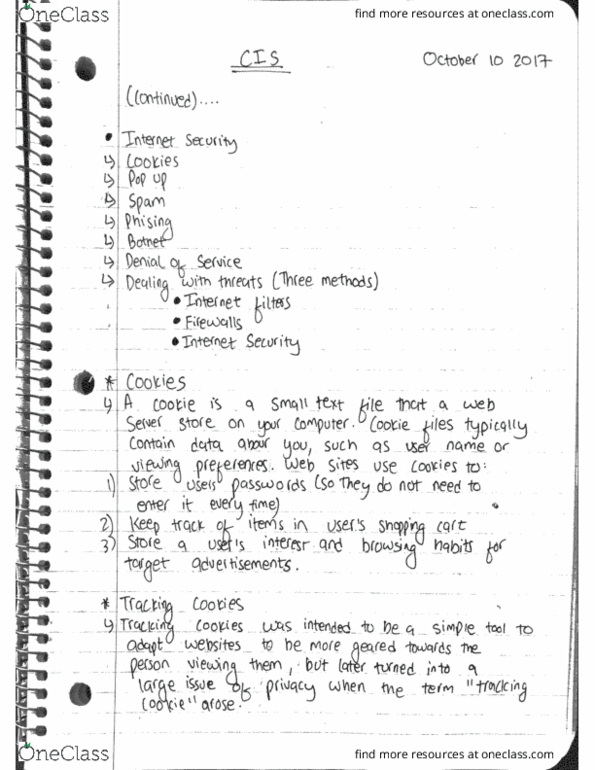 OneClass
find more resources at oneclass.com
CIS
October 10 2017
(Continued)....
• Internet Security
↳ Cookies
↳ Pop up
↳ Spam
↳ Phising
↳ Botnet
↳ Denial of Service
↳ Dealing with threats (Three methods)
• Internet filters
• Firewalls
• Internet Security
* Cookies
↳ A cookie is a small text file that a web
Server store on your computer. Cookie files typically
contain data about you, such as user name or
viewing preferences. Web sites use cookies to:
1) Store users passwords (so they do not need to
enter it every time)
2) Keep track of items in user's shopping cart
3) Store a user's interest and browsing habits for
target advertisements.
* Tracking Cookies
↳ Tracking cookies was intended to be a simple tool to
adapt websites to be more geared towards the
person viewing them, but later turned into a
large issue of privacy when the term "tracking
cookie" arose.
OneClass
find more resources at oneclass.com